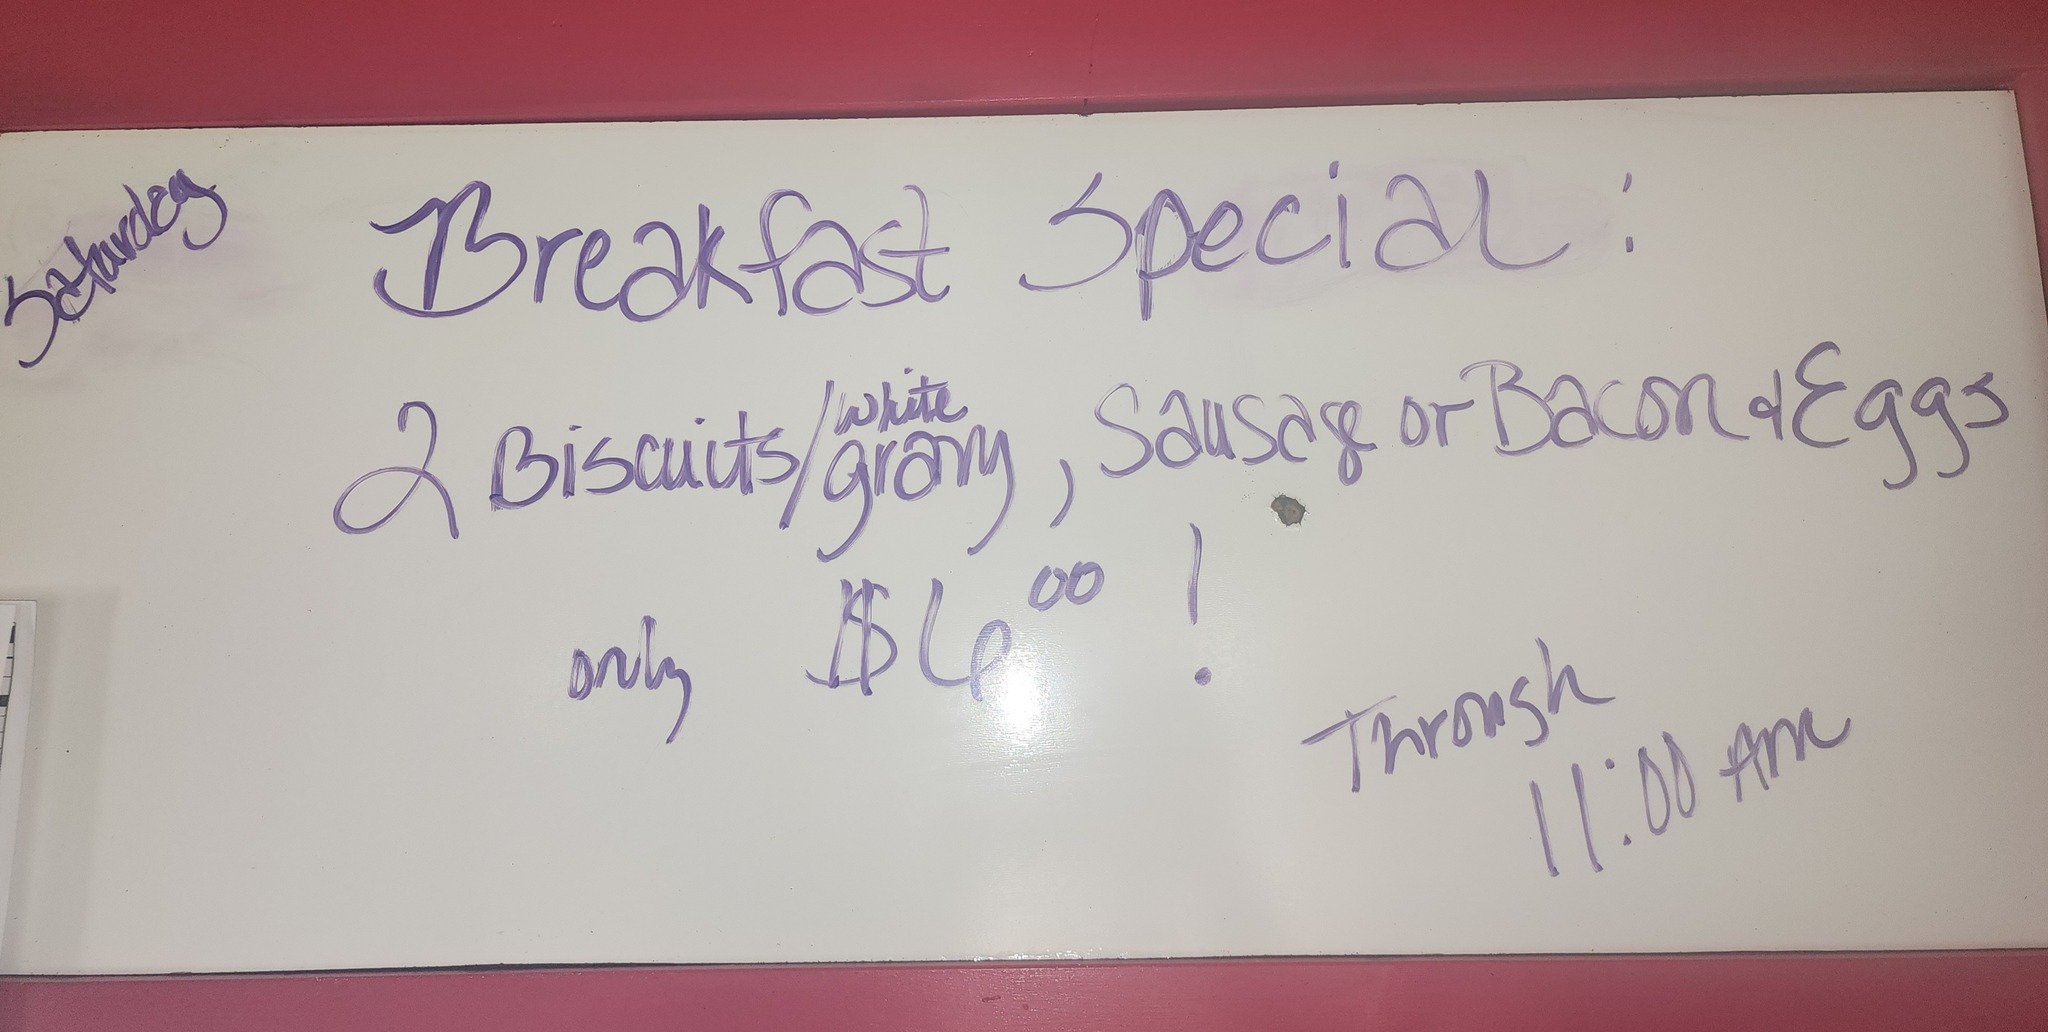 Saturday
Breakfast Special:
2 Biscuits/white gravy, Sausage or Bacon & Eggs
only $6.00!
Through
11:00 Am